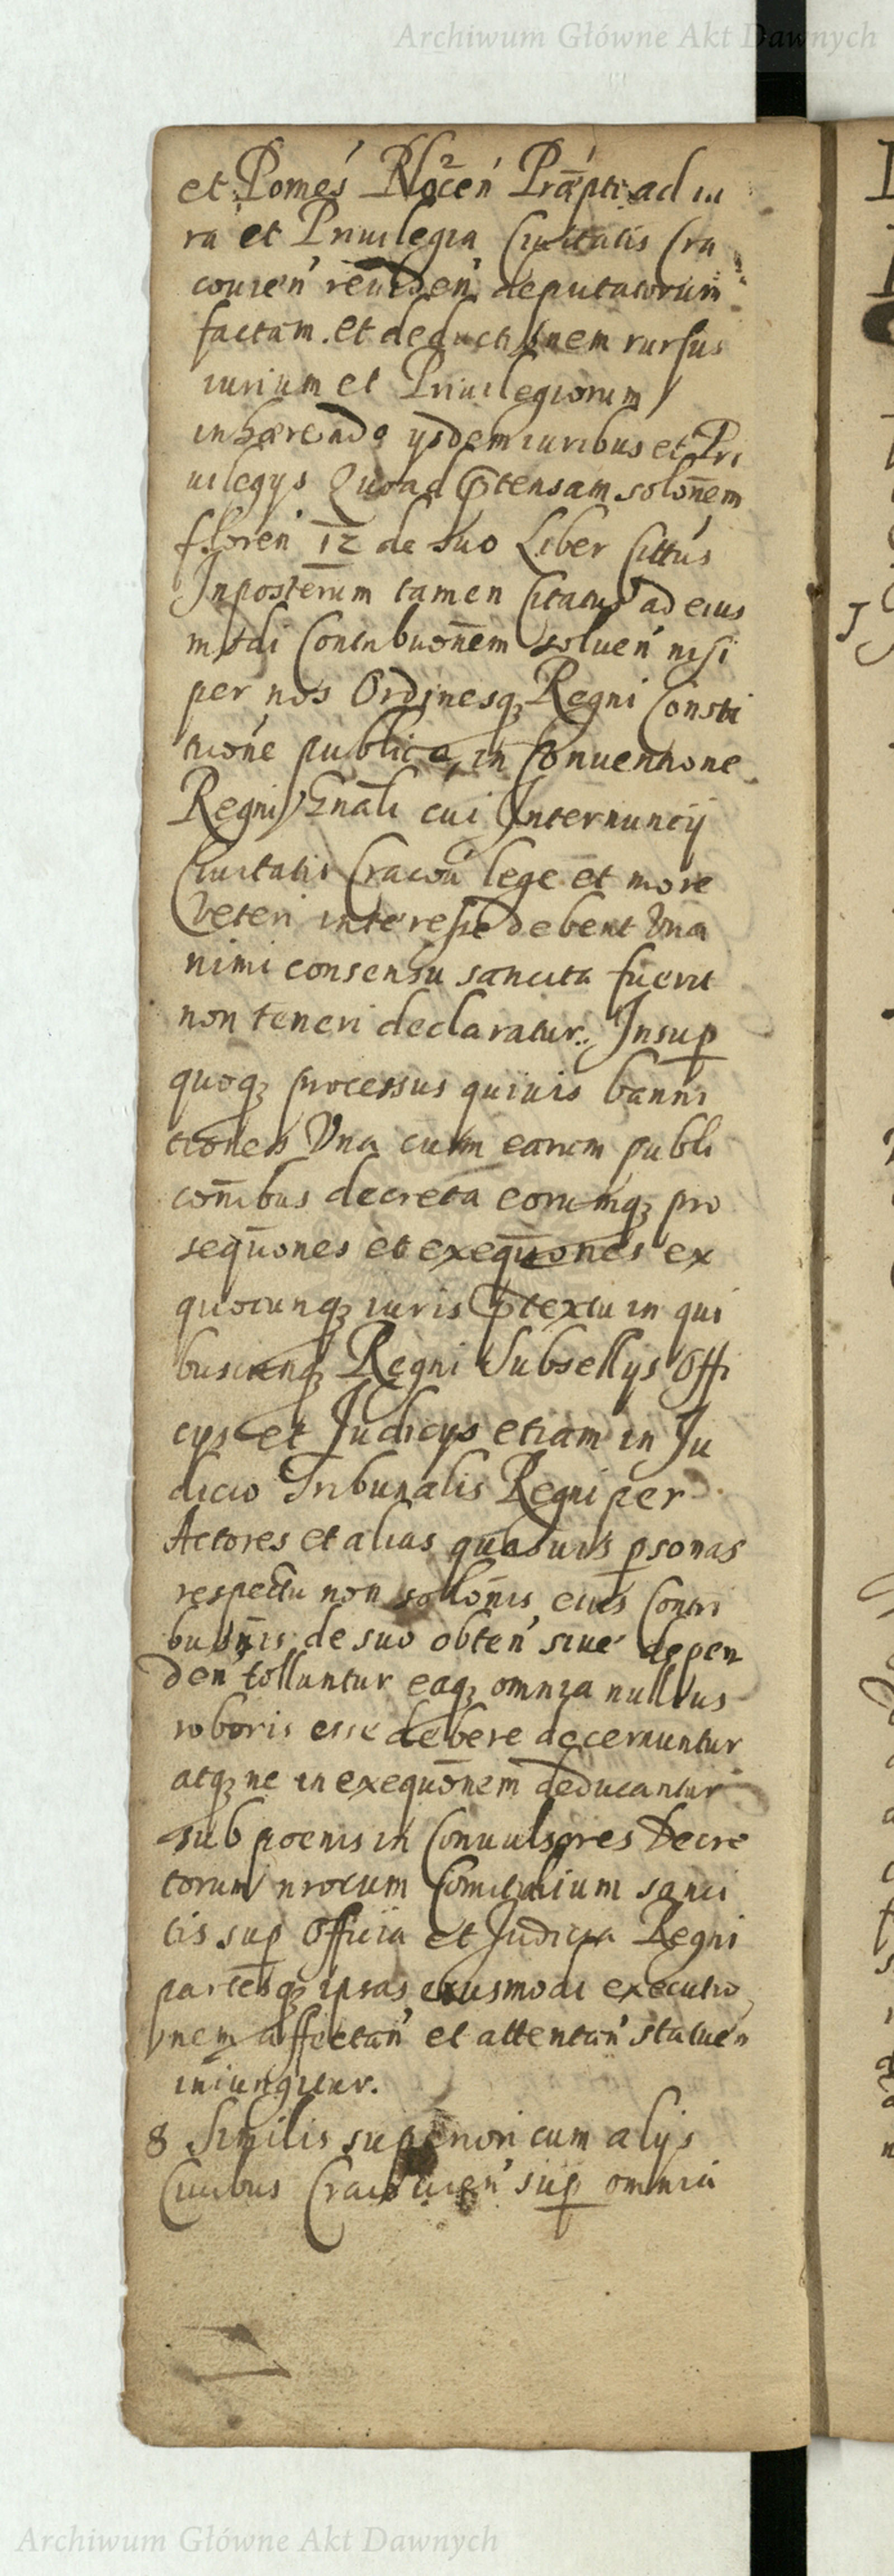 Archiwum Główne Akt Dawnych
et Pomes Præpti ad iu
ra et Priuilegia Ciuitatis Cra
couien̄ reuiden̄ deputatorum
factam. et deductionem rursus
iurium et Priuilegiorum
inhærendo ysdem iuribus et Pri
uilegys Quoad p̄tensam solōnem
floren̄ 12 de suo Liber Cittus
Inposterum tamen Citatus ad eius
modi Contribuōnem soluen̄ nisi
per nos Ordinesq3 Regni Consti
tuōne publica, in Conuentione
Regni Gnāli cui Internuncij
Ciuitatis Cracou̅ lege et more
veteri interesse debent Vna
nimi consensu sancita fuerit
non teneri declaratur. Insup
quoq3 processus quiuis banni
tiones Vna cum earum publi
cōnibus decreta eorumq3 pro
seqūones et exeqūones ex
quocunq3 iuris p̄textu in qui
buscunq3 Regni Subsellys Offi
cys et Judicys etiam in Ju
dicio Tribunalis Regni per
Actores et alias quasuis psonas
respectu non solōnis eius Contri
buōnis de suo obten̄ siue depen
den̄ tolluntur eaq3 omnia nullius
roboris esse debere decernuntur
atq3 ne in exequōnem deducantur
sub poenis in Conuulsores Decre
torum nrorum Comitialium sanci
tis sup Officia et Judicia Regni
partesq3 ipsas eiusmodi executio
nem affectan̄ et attentan̄ statuen
iniungitur.
8 Similis superiori cum alijs
Ciuibus Cracouien̄ sup omnia
Archiwum Główne Akt Dawnych